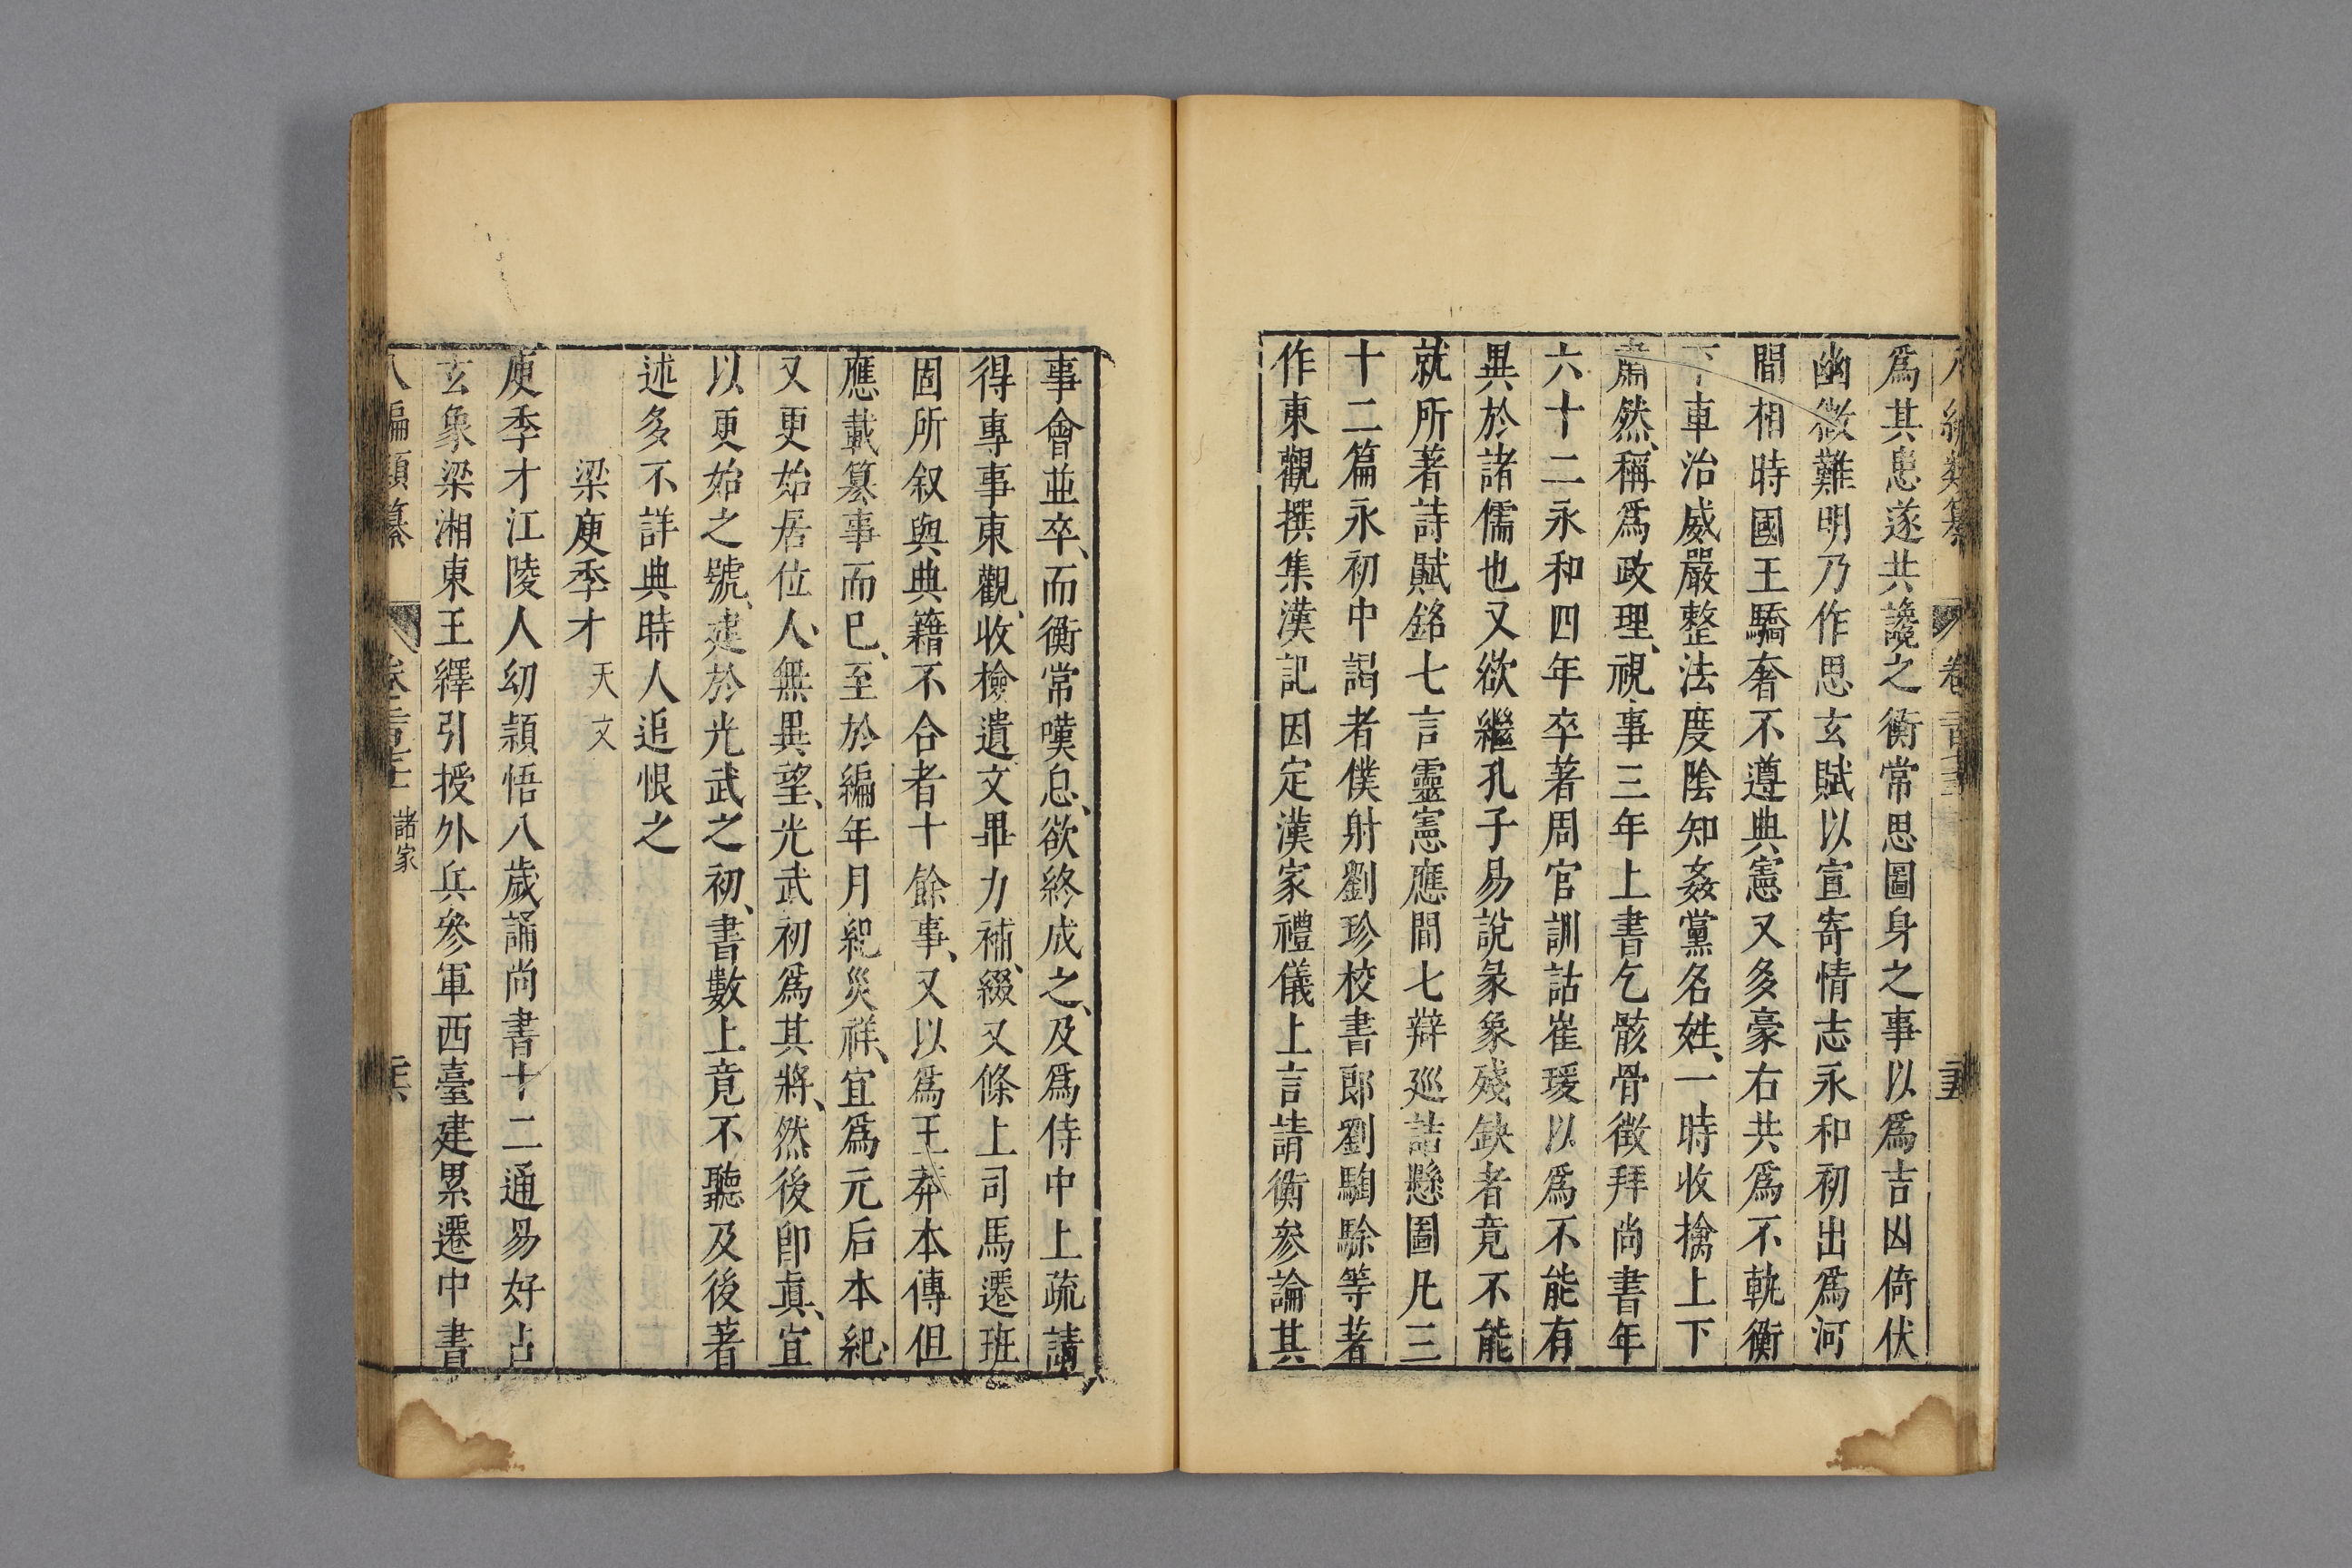 爲其患遂共讒之衡常思圖身之事以爲吉凶倚伏
幽微難明乃作思玄賦以宣寄情志永和初出爲河
間相時國王驕奢不遵典憲又多豪右共爲不軌衡
下車治威嚴整法度陰知姦黨名姓、一時收擒上下
肅然、稱爲政理、視事三年上書乞骸骨徴拜尚書年
六十二永和四年卒著周官訓詁崔瑗以爲不能有
異於諸儒也又欲繼孔子易說彖象殘缺者竟不能
就所著詩賦銘七言靈憲應間七辯巡誥懸圖凡三
十二篇永初中謁者僕射劉珍校書郎劉騊駼等著
作東觀撰集漢記因定漢家禮儀上言請衡參論其
事會並卒、而衡常嘆息、欲終成之、及爲侍中上疏請
得專事東觀、收檢遺文畢力補、綴又條上司馬遷班
固所叙與典籍不合者十餘事、又以爲王莽本傳但
應載簒事而已、至於編年月紀災祥、宜爲元后本紀、
又更始居位、人無異望、光武初爲其將、然後即眞、宜
以更始之號、建於光武之初、書數上竟不聽及後著
述多不詳典時人追恨之
梁庾季才 天文
庾季才江陵人幼頴悟八歲誦尚書十二通易好占
玄象梁湘東王繹引授外兵參軍西臺建累遷中書
八編類纂 諸家